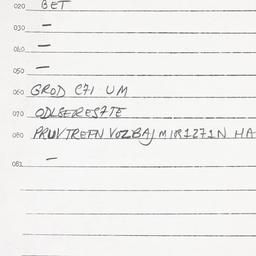 020 BET
030 —
040 —
050 —
060 GROD C71 UM
070 ODLBERES7TE
080 PRUVTREFN VOZBAJ MIR1271N HA
081 —